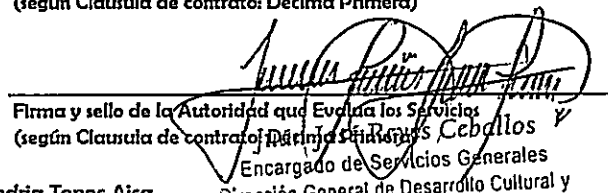 (según Clausula de contrato: Décima Primera)
Firma y sello de la Autoridad que Evalúa los Servicios
(según Clausula de contrato: Décima Primera)
José Reyes Ceballos
Encargado de Servicios Generales
Dirección General de Desarrollo Cultural y